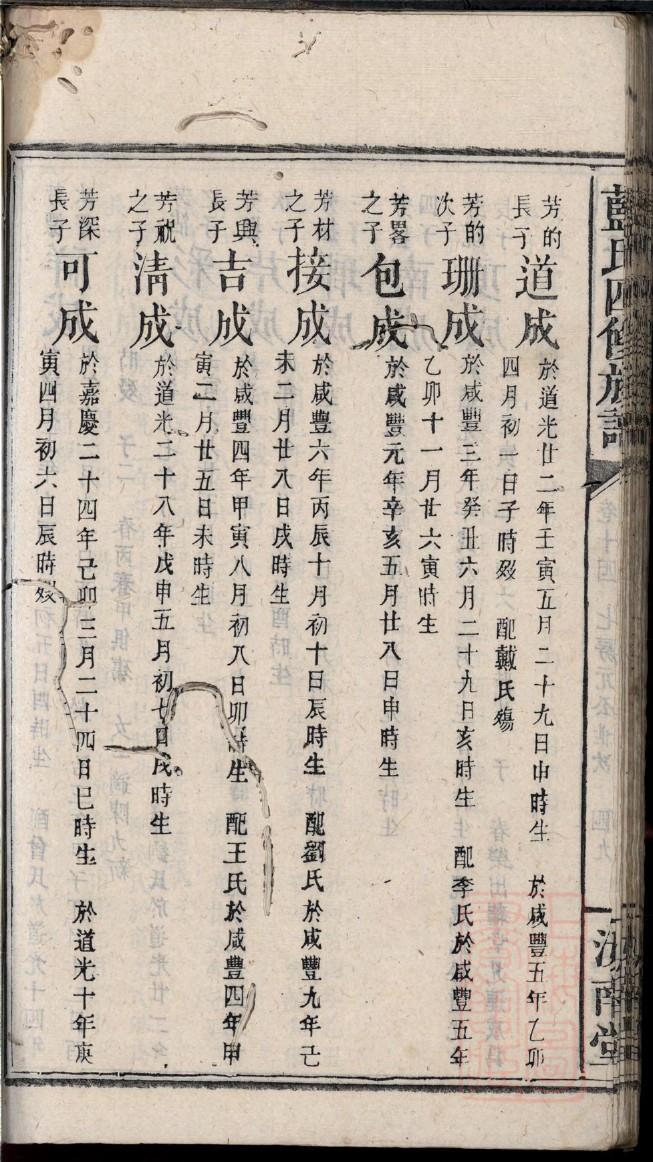 藍氏四修族譜
汝南堂
芳的
長子
道成
於道光廿二年壬寅五月二十九日申時生 於咸豐五年乙卯
四月初一日子時歿 配戴氏殤
芳的
次子
珊成
於咸豐三年癸丑六月二十九日亥時生 配李氏於咸豐五年
乙卯十一月廿六寅時生
芳畧
之子
包成
於咸豐元年辛亥五月廿八日申時生
芳材
之子
接成
於咸豐六年丙辰十月初十日辰時生 配劉氏於咸豐九年己
未二月廿八日戌時生
芳興
長子
吉成
於咸豐四年甲寅八月初八日卯時生 配王氏於咸豐四年甲
寅二月廿五日未時生
芳祝
之子
淸成
於道光二十八年戊申五月初七日戌時生
芳深
長子
可成
於嘉慶二十四年己卯三月二十四日巳時生 於道光十年庚
寅四月初六日辰時歿